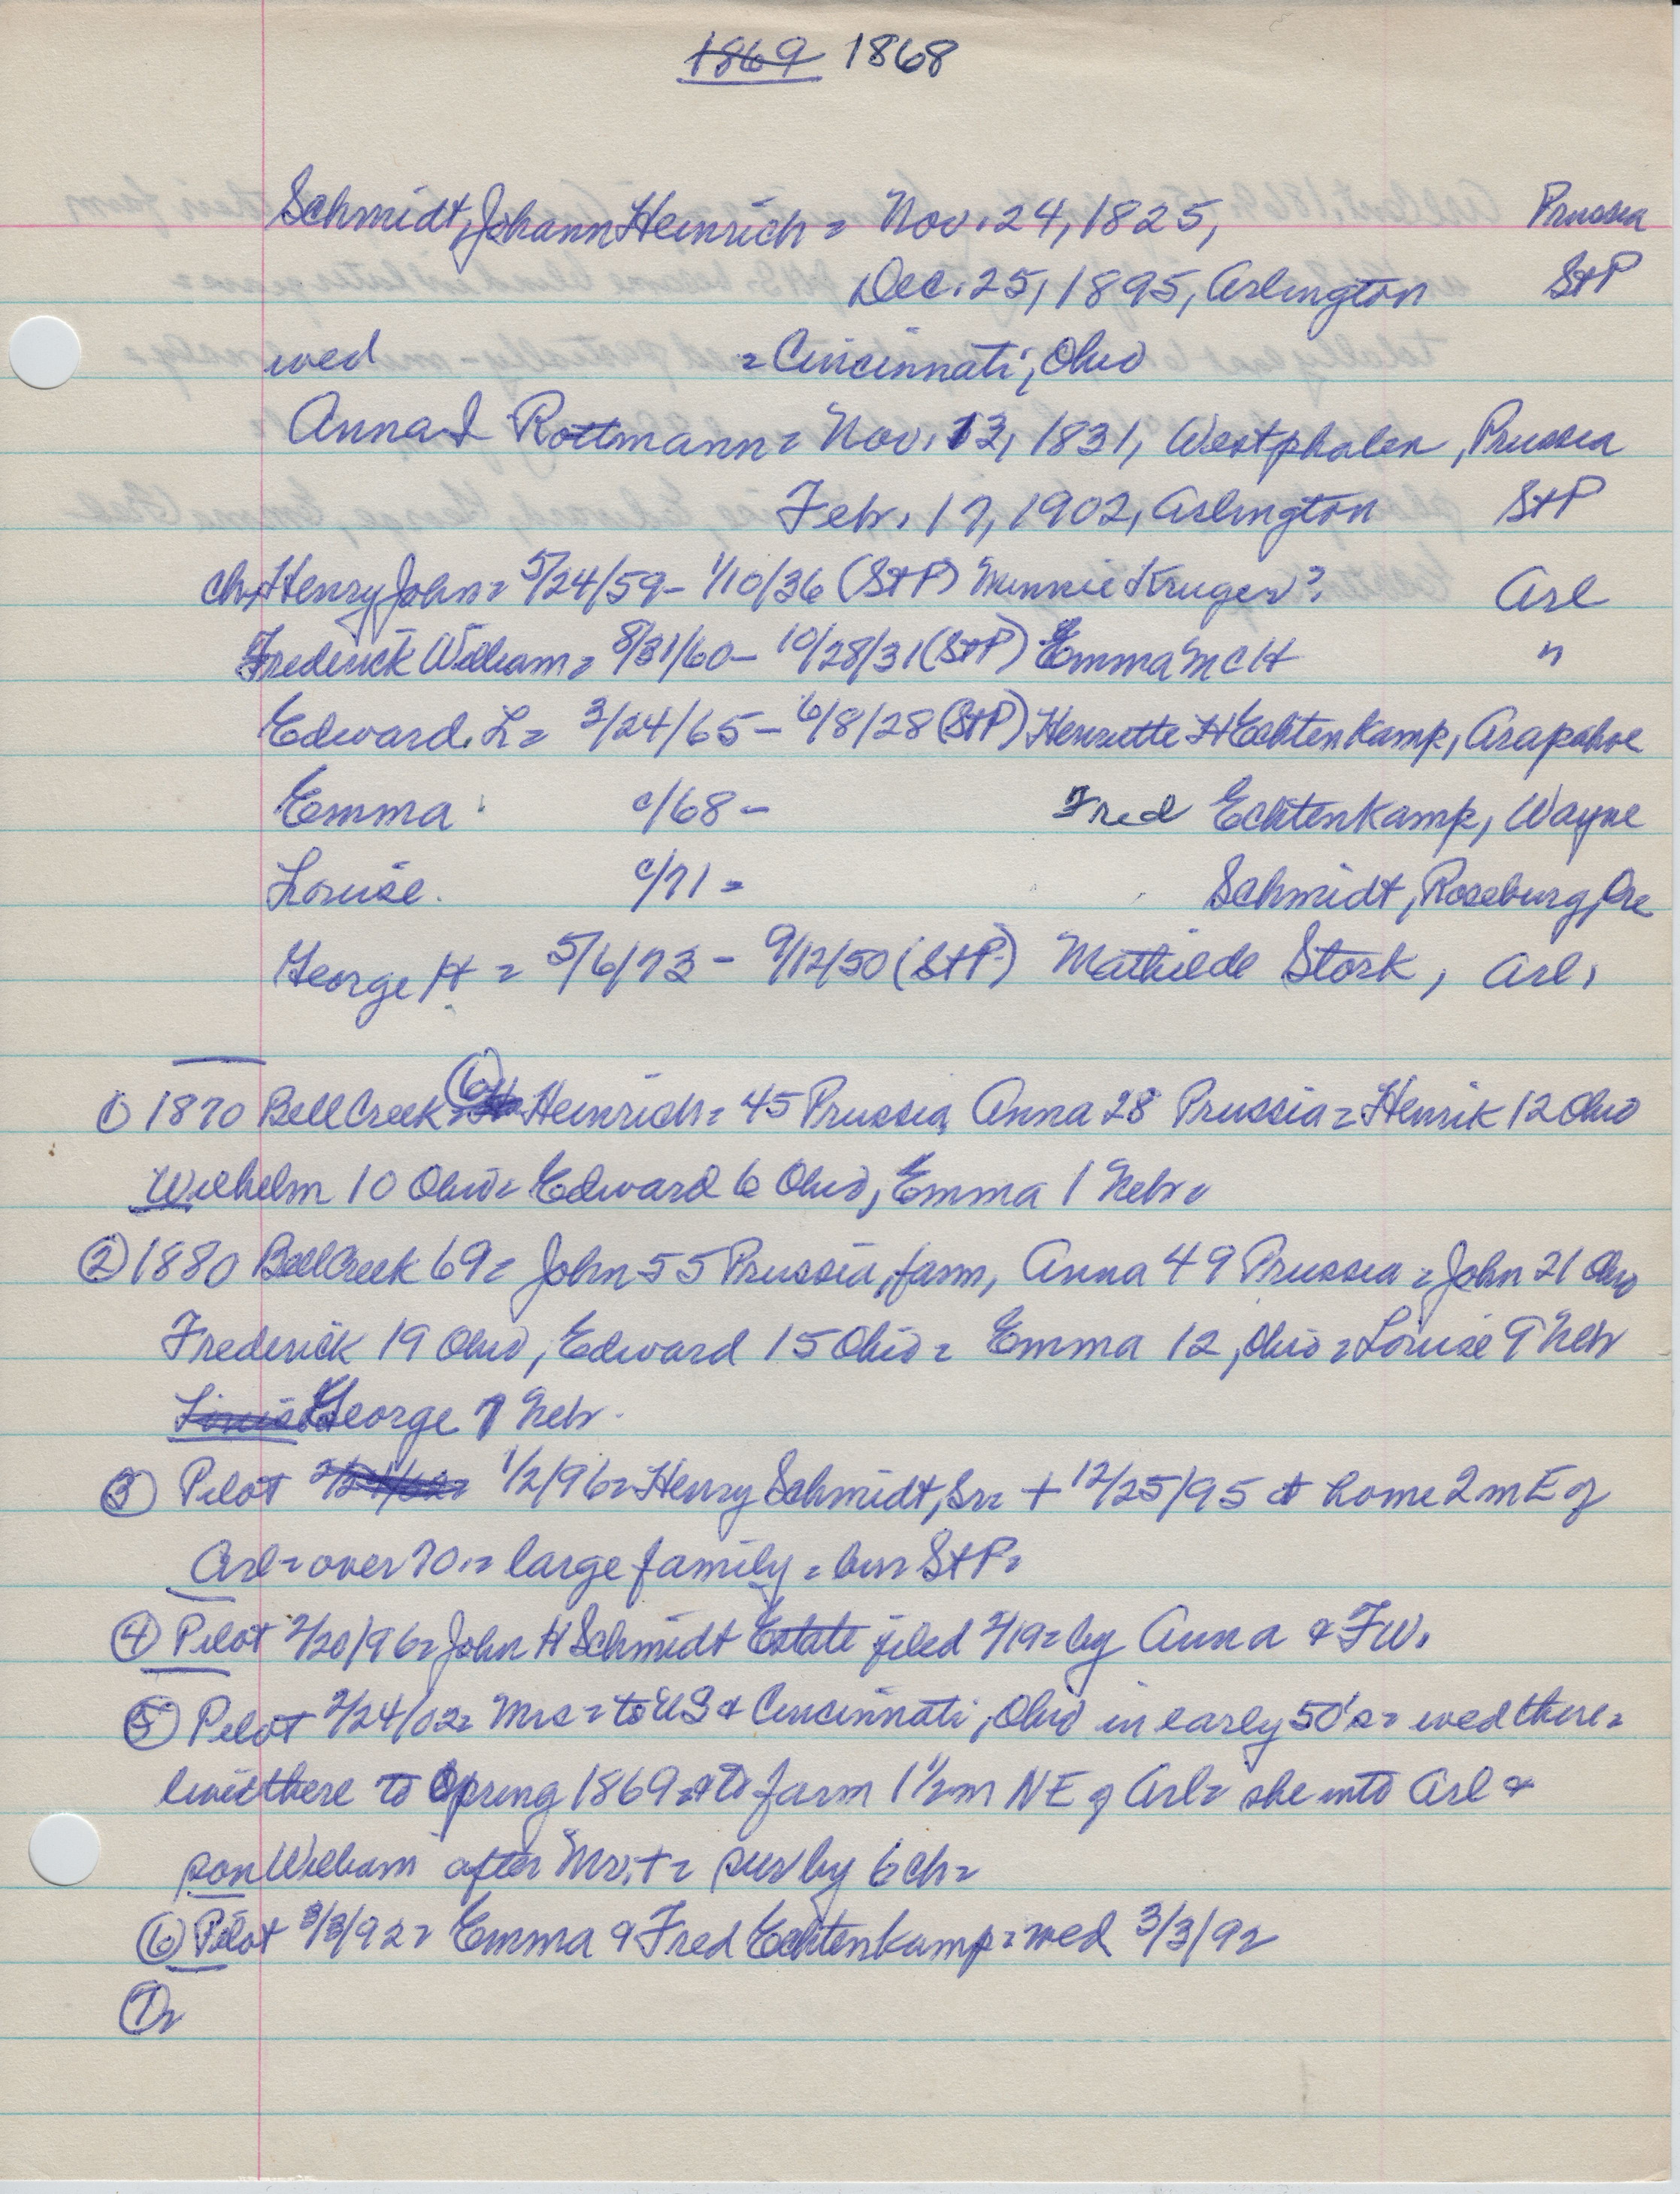 1869 1868
Schmidt, Johann Heinrich = Nov. 24, 1825, Prussia
Dec. 25, 1895, Arlington StP
wed = Cincinnati, Ohio
Anna I Rottmann = Nov. 13, 1831, Westphalen, Prussia
Febr. 17, 1902, Arlington StP
ch, Henry John = 5/24/59 - 1/10/36 (StP) Minnie Kruger? Arl
Frederick William = 8/31/60 - 10/28/31 (StP) Emma McH "
Edward. L = 3/24/65 - 6/8/28 (StP) Henriette H Echtenkamp, Arapahoe
Emma c/68 - Fred Echtenkamp, Wayne
Louise. c/71 = Schmidt, Roseburg, Ore
George H = 5/6/73 - 9/12/50 (StP) Mathilde Stork, Arl,
① 1870 Bell Creek = 6 Heinrich = 45 Prussia, Anna 28 Prussia = Henrik 12 Ohio
Wilhelm 10 Ohio = Edward 6 Ohio, Emma 1 Nebr =
② 1880 Bell Creek 69 = John 55 Prussia, farm, Anna 49 Prussia = John 21 Ohio
Frederick 19 Ohio, Edward 15 Ohio = Emma 12, Ohio = Louise 9 Nebr
Louis George 7 Nebr.
③ Pilot 2/24/02 = 1/2/96 = Henry Schmidt, Sr = + 12/25/95 at home 2 m E of
Arl = over 70 = large family = bur StP =
④ Pilot 2/20/96 = John H Schmidt Estate filed 2/19 = by Anna & FW.
⑤ Pilot 2/24/02 = Mrs = to US & Cincinnati, Ohio in early 50's = wed there =
lived there to Spring 1869 = & to farm 1 1/2 m NE of Arl = she into Arl &
son William after Mr. + = sur by 6 ch =
⑥ Pilot 3/3/92 = Emma & Fred Echtenkamp = wed 3/3/92
⑦ =